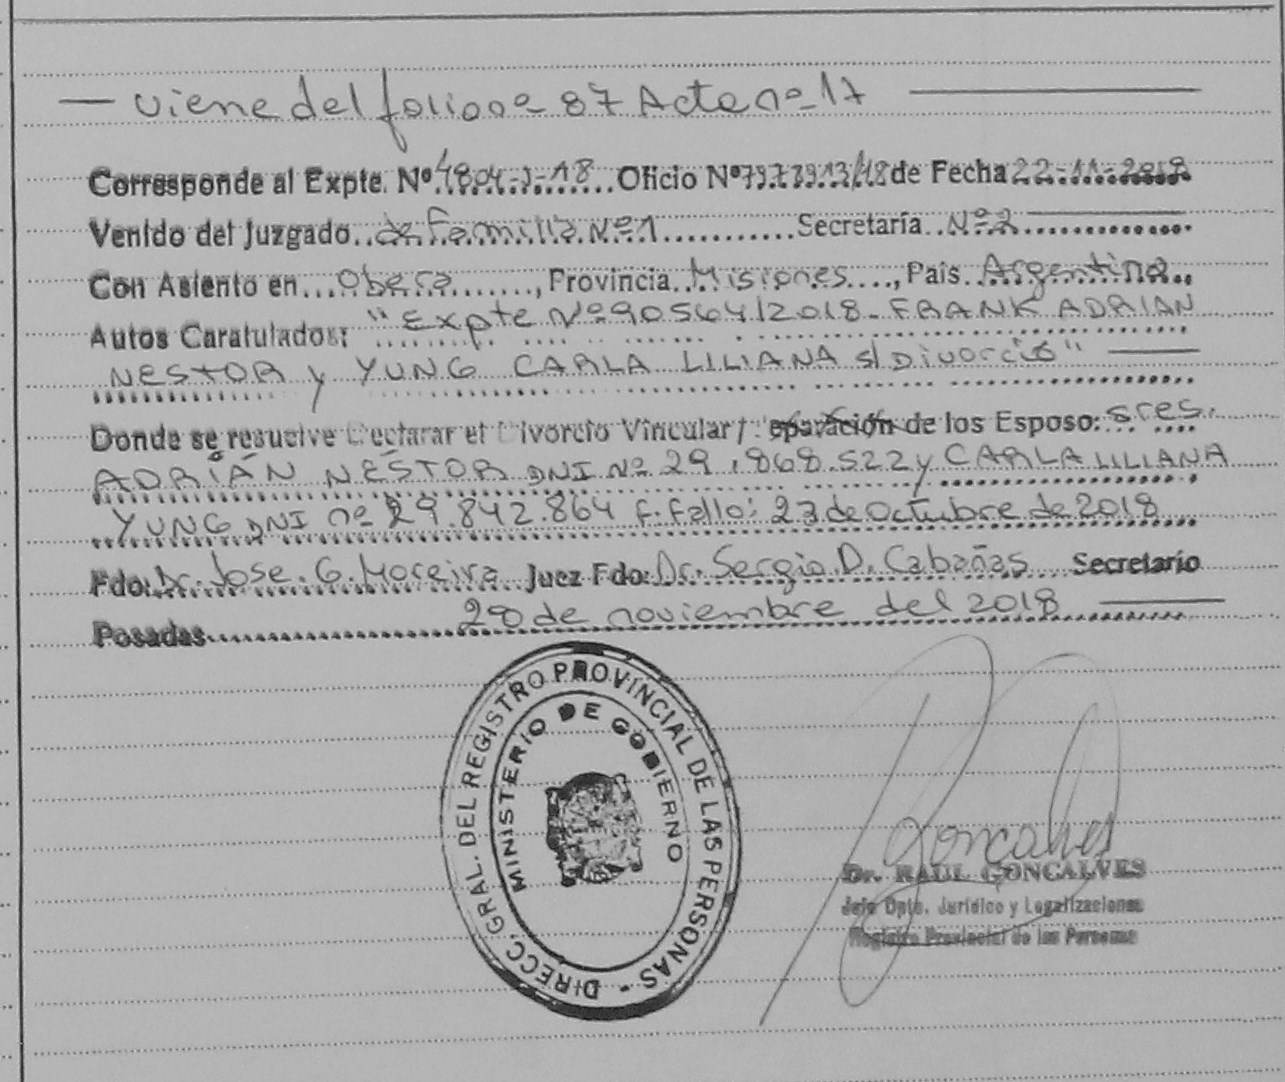 — viene del folio nº 87 Acta nº 17 —
Corresponde al Expte. Nº 4804-J-18 Oficio Nº 7973913/18 de Fecha 22-11-2018
Venido del Juzgado de Familia Nº 1 Secretaría Nº 2
Con Asiento en Obera, Provincia Misiones, País Argentina
Autos Caratulados: "Expte Nº 90564/2018- FRANK ADRIAN
NESTOR y YUNG CARLA LILIANA s/ Divorcio" —
Donde se resuelve Declarar el Divorcio Vincular/ Separación de los Esposo: Sres.
ADRIÁN NÉSTOR DNI Nº 29.868.522 y CARLA LILIANA
YUNG DNI nº 29.842.864 f. fallo: 23 de Octubre de 2018
Fdo: Dr. Jose G. Moreira Juez Fdo: Dr. Sergio D. Cabañas Secretario
Posadas 28 de noviembre del 2018 —
DIRECC. GRAL. DEL REGISTRO PROVINCIAL DE LAS PERSONAS -
MINISTERIO DE GOBIERNO
Goncalves
Dr. RAUL GONCALVES
Jefe Dpto. Jurídico y Legalizaciones
Registro Provincial de las Personas